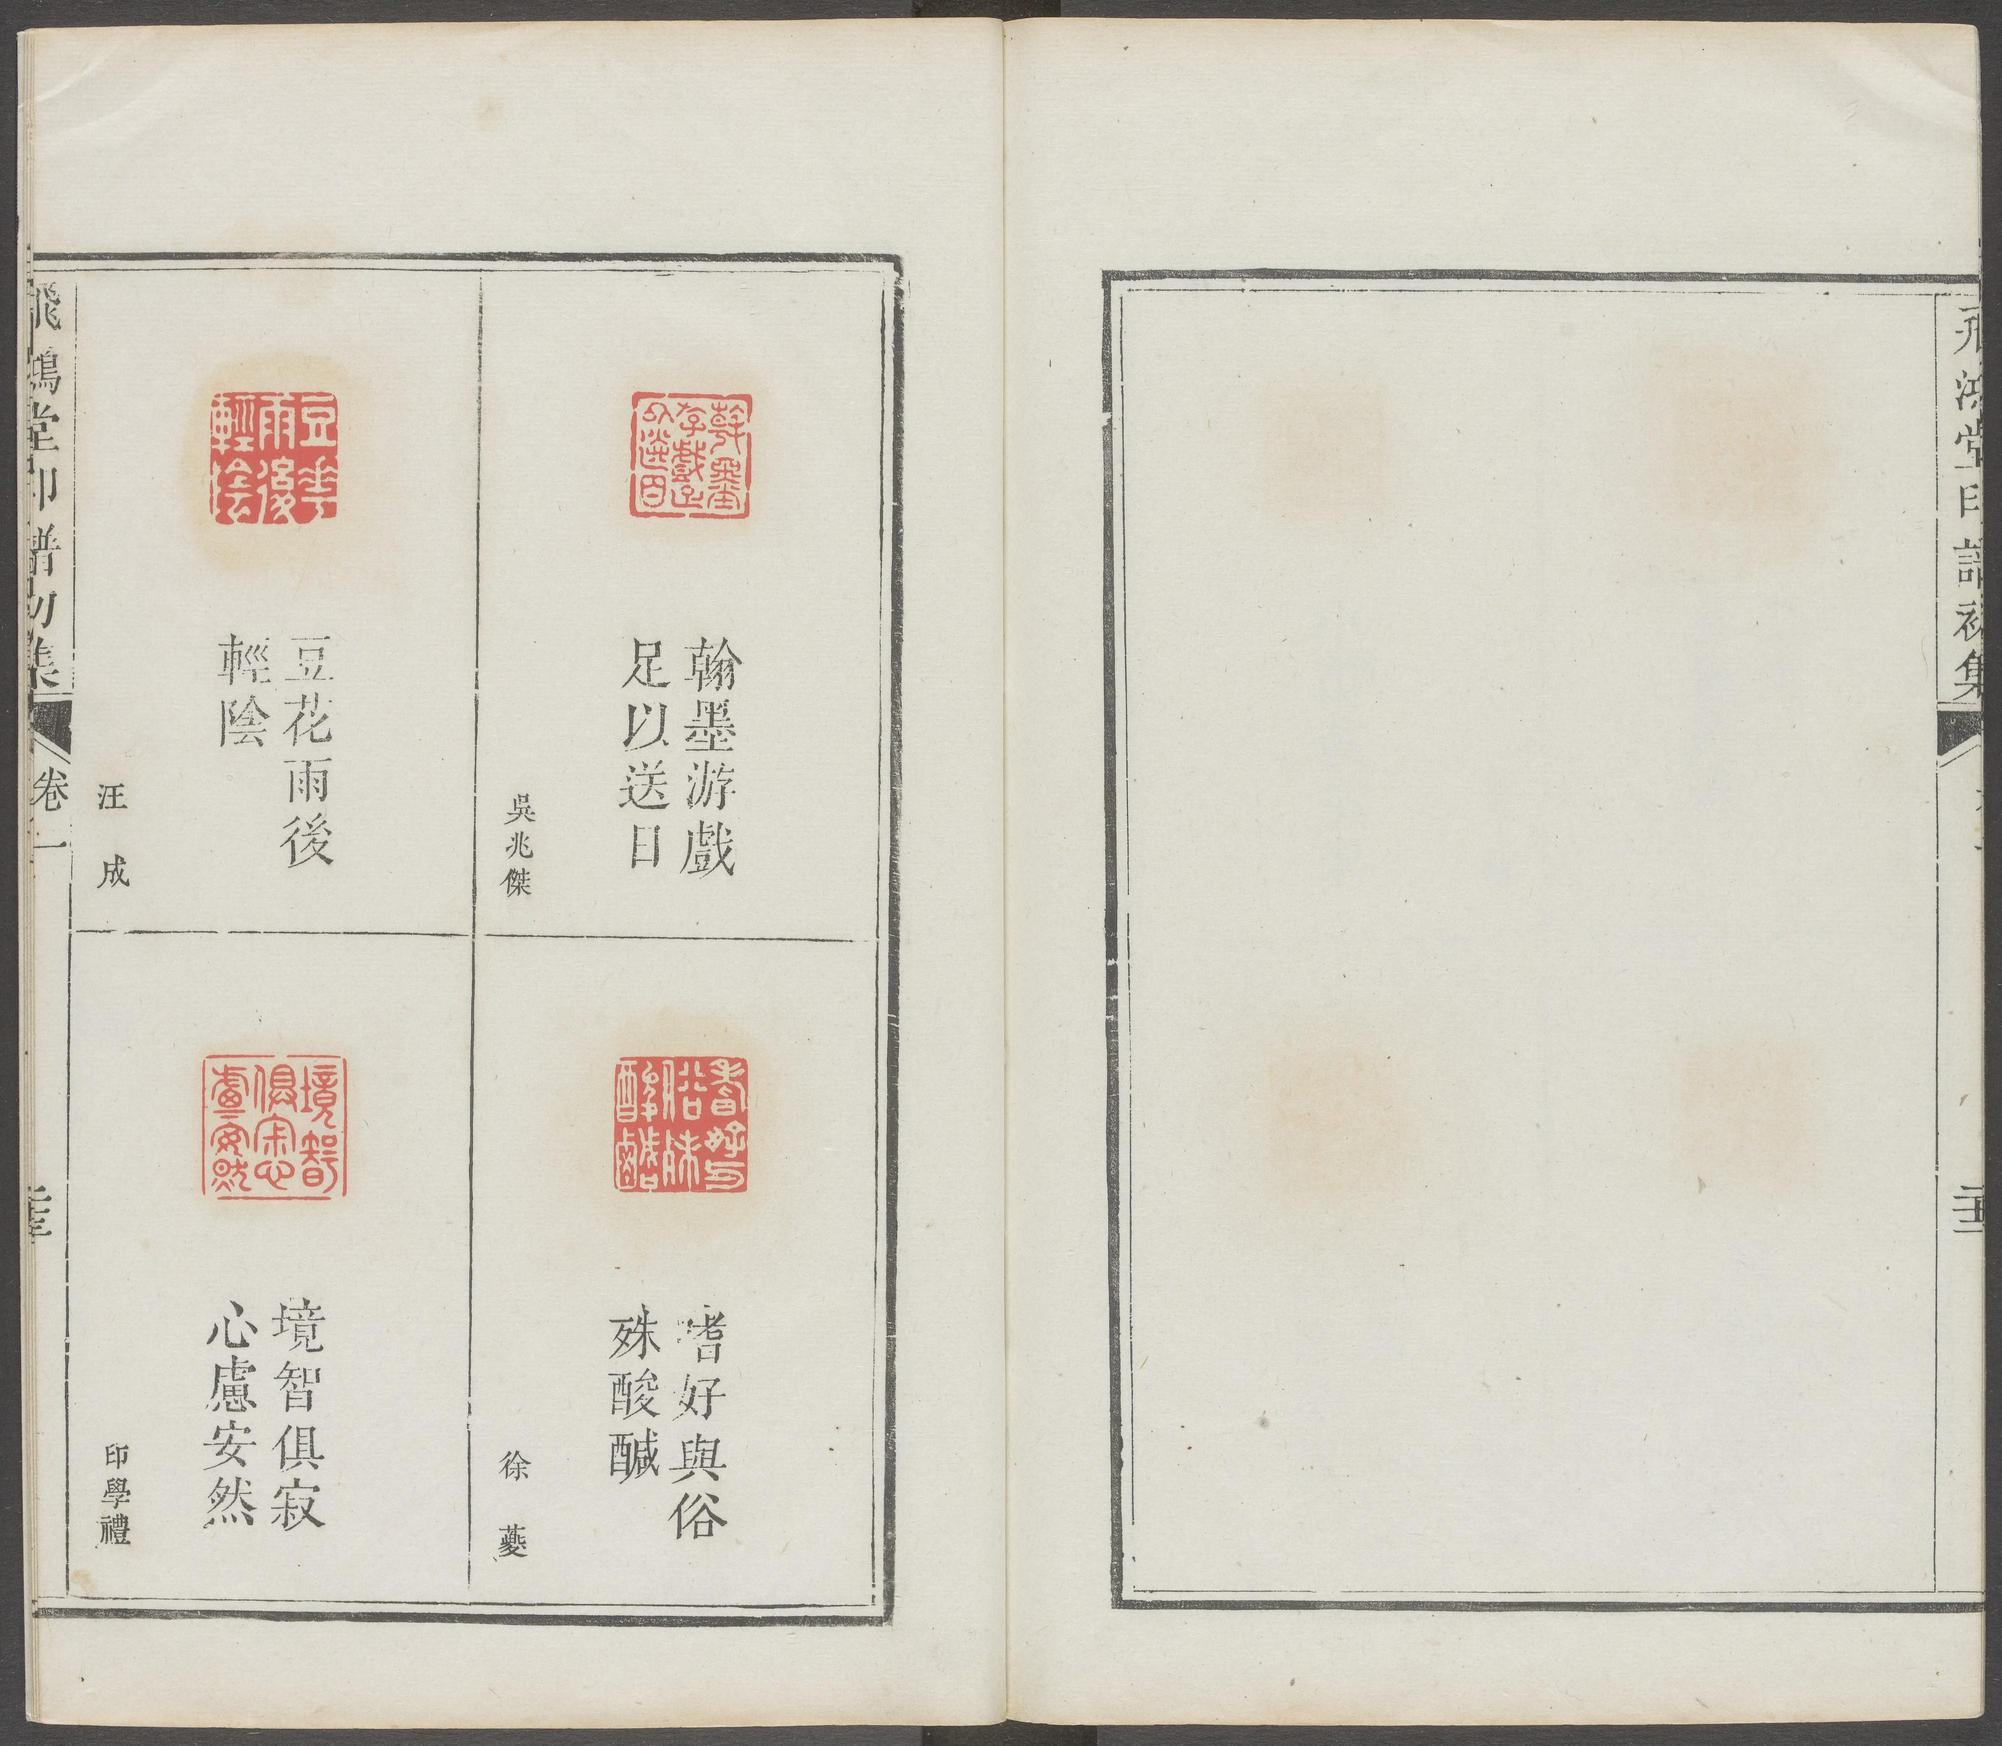 飛鴻堂印譜初集
翰墨游戲
足以送日
吳兆傑
嗜好與俗
殊酸醎
徐 䕫
豆花雨後
輕陰
汪 成
境智俱寂
心慮安然
印學禮
飛鴻堂印譜初集 卷一